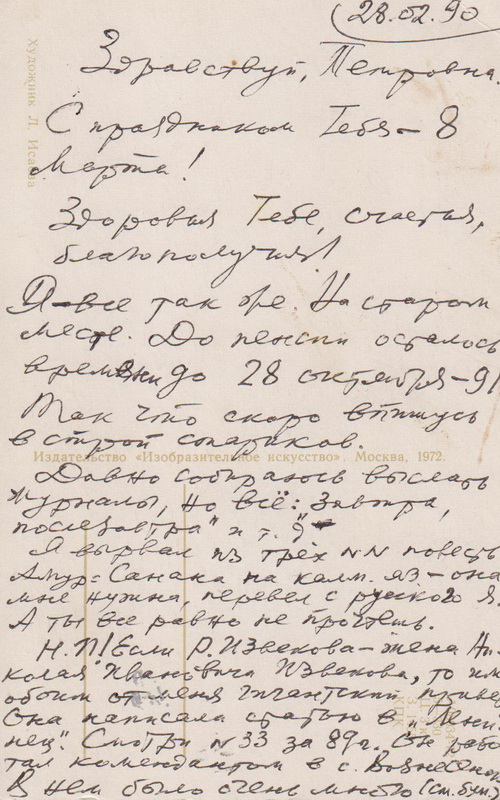 28.02.90
Здравствуй, Петровна.
С праздником Тебя – 8
Марта!
Здоровья Тебе, счастья,
благополучия!
Я все так же на старом
месте. До пенсии осталось
времени до 28 октября – 91
Так что скоро впишусь
в строй стариков.
Давно собираюсь выслать
журналы, но всё: "завтра,
послезавтра" и т.д.
Я вырвал из трёх NN повесть
Амур-Санана на калм. яз. – она
мне нужна, перевел с русского я.
А ты все равно не прочтешь.
Н.П! Если Р. Извекова – жена Ни-
колая Ивановича Извекова, то им
обоим от меня гигантский привет
Она написала статью в "Ленин
нец". Смотри N 33 за 89г. Он рабо
тал комендантом в с.
В нем было очень много (см. бум.
Художник Л. Исаева
Издательство «Изобразительное искусство». Москва, 1972.